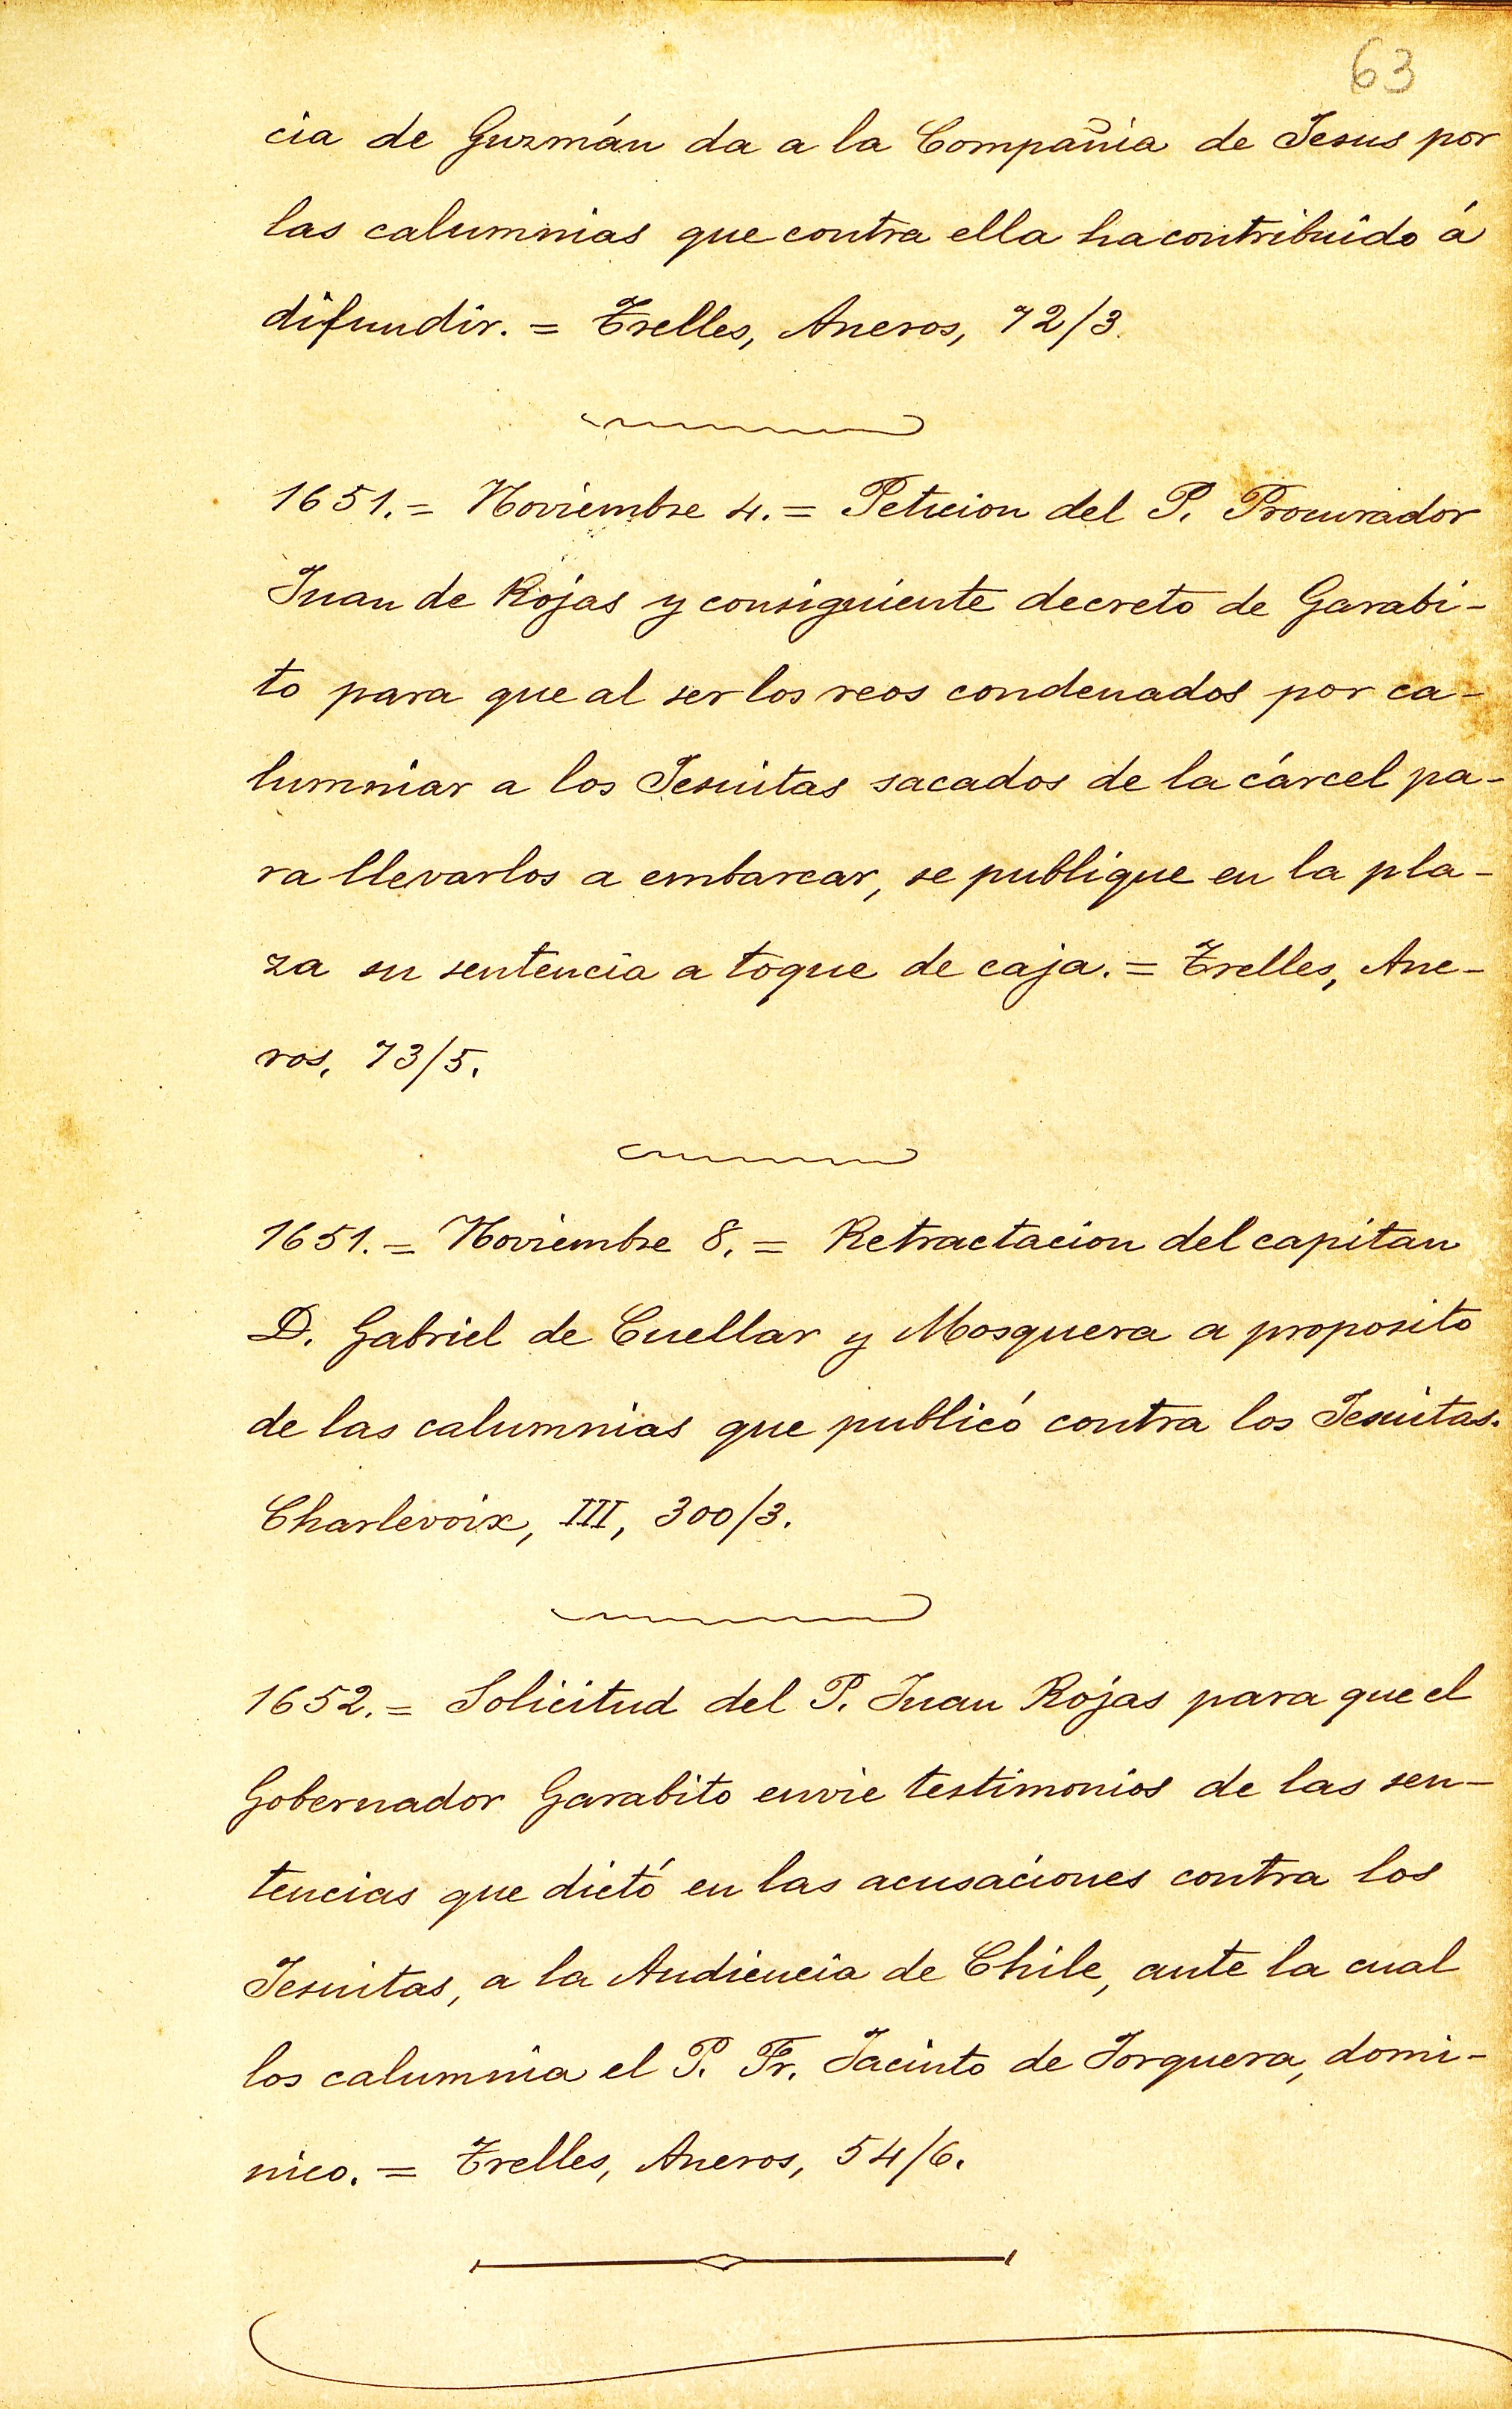 63
cia de Guzmán da a la Compañia de Jesus por
las calumnias que contra ella ha contribuido á
difundir. = Trelles, Anexos, 72/3.
1651. = Noviembre 4. = Peticion del P. Procurador
Juan de Rojas y consiguiente decreto de Garabi-
to para que al ser los reos condenados por ca-
lumniar a los Jesuitas sacados de la cárcel pa-
ra llevarlos a embarcar, se publique en la pla-
za su sentencia a toque de caja. = Trelles, Ane-
xos, 73/5.
1651. = Noviembre 8. = Retractacion del capitan
D. Gabriel de Cuellar y Mosquera a proposito
de las calumnias que publicó contra los Jesuitas.
Charlevoix, III, 300/3.
1652. = Solicitud del P. Juan Rojas para que el
Gobernador Garabito envie testimonios de las sen-
tencias que dictó en las acusaciones contra los
Jesuitas, a la Audiencia de Chile, ante la cual
los calumnia el P. Fr. Jacinto de Jorquera, domi-
nico. = Trelles, Anexos, 54/6.